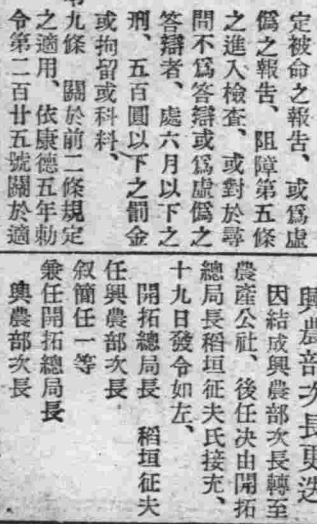 定被命之報告、或爲虛
僞之報告、阻障第五條
之進入檢查、或對於尋
問不爲答辯或爲虛僞之
答辯者、處六月以下之
刑、五百圓以下之罰金
或拘留或科料、
第九條　關於前二條規定
之適用、依康德五年勅
令第二百廿五號關於適
興農部次長更迭
因結成興農部次長轉至
農產公社、後任決由開拓
總局長稻垣征夫氏接充、
十九日發令如左、
開拓總局長　稻垣征夫
任興農部次長
叙簡任一等
兼任開拓總局長
興農部次長